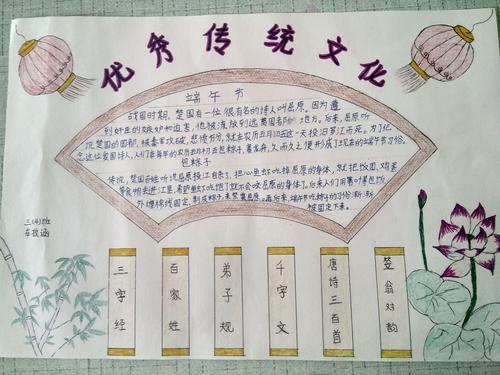 优秀传统文化
端午节
战国时期，楚国有一位很有名的诗人叫屈原。因为遭
到奸臣的嫉妒和迫害，他被流放到远离国都的地方。后来，屈原听
说楚国的国都被秦军攻破，悲愤万分，就在农历五月初五这一天投汨罗江而死。为了纪
念这位爱国诗人，人们在每年的农历五月初五包粽子、赛龙舟，久而久之便形成了现在的端午节习俗。
包粽子
传说，楚国百姓听说屈原投江自杀了，担心鱼虾吃掉屈原的身体，就把饭团、鸡蛋
等食物丢进江里，希望鱼虾吃饱了就不会咬屈原的身体了。后来人们用箬叶包饭
外缠棉线固定，制成粽子，来祭奠屈原。再后来，端午节吃粽子的习俗渐渐
被固定下来。
三(4)班
三字经
百家姓
弟子规
千字文
唐诗三百首
笠翁对韵